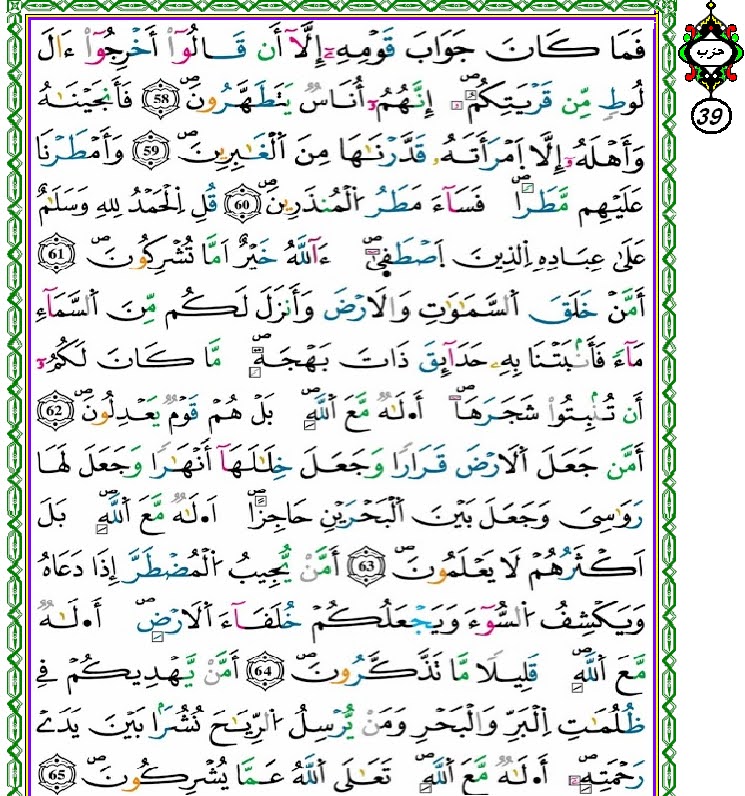 حزب
39
فَمَا كَانَ جَوَابَ قَوْمِهِۦٓ إِلَّآ أَن قَالُوٓا۟ أَخْرِجُوٓا۟ ءَالَ
لُوطٍ مِّن قَرْيَتِكُمُۥٓ إِنَّهُمُۥٓ أُنَاسٌ يَتَطَهَّرُونَ 58 فَأَنجَيْنَـٰهُ
وَأَهْلَهُۥٓ إِلَّا اَمْرَأَتَهُۥ قَدَّرْنَـٰهَا مِنَ اَلْغَـٰبِرِينَ 59 وَأَمْطَرْنَا
عَلَيْهِم مَّطَراً فَسَآءَ مَطَرُ اُلْمُنذَرِينَ 60 قُلِ اِلْحَمْدُ لِلهِ وَسَلَـٰمٌ
عَلَىٰ عِبَادِهِ اِلذِينَ اَصْطَفِىٰٓ ءَآللَّهُ خَيْرٌ اَمَّا تُشْرِكُونَ 61
أَمَّنْ خَلَقَ اَلسَّمَـٰوَٰتِ وَالَارْضَ وَأَنزَلَ لَكُم مِّنَ اَلسَّمَآءِ
مَآءً فَأَنۢبَتْنَا بِهِۦ حَدَآئِقَ ذَاتَ بَهْجَةٍ مَّا كَانَ لَكُمُۥٓ
أَن تُنۢبِتُوا۟ شَجَرَهَآ أَ۟لَـٰهٌ مَّعَ اَللَّهِ بَلْ هُمْ قَوْمٌ يَعْدِلُونَ 62
أَمَّن جَعَلَ اَلَارْضَ قَرَاراً وَجَعَلَ خِلَـٰلَهَآ أَنْهَـٰراً وَجَعَلَ لَهَا
رَوَٰسِىَ وَجَعَلَ بَيْنَ اَلْبَحْرَيْنِ حَاجِزاً اَ۟لَـٰهٌ مَّعَ اَللَّهِ بَلَ
اَكْثَرُهُمْ لَا يَعْلَمُونَ 63 أَمَّنْ يُّجِيبُ اُلْمُضْطَرَّ إِذَا دَعَاهُ
وَيَكْشِفُ اُلسُّوٓءَ وَيَجْعَلُكُمْ خُلَفَآءَ اَلَارْضِ أَ۟لَـٰهٌ
مَّعَ اَللَّهِ قَلِيلًا مَّا تَذَّكَّرُونَ 64 أَمَّنْ يَّهْدِيكُمْ فِى
ظُلُمَـٰتِ اِلْبَرِّ وَالْبَحْرِ وَمَنْ يُّرْسِلُ اُلرِّيَـٰحَ نُشُراً بَيْنَ يَدَىْ
رَحْمَتِهِۦٓ أَ۟لَـٰهٌ مَّعَ اَللَّهِ تَعَـٰلَى اَللَّهُ عَمَّا يُشْرِكُونَ 65